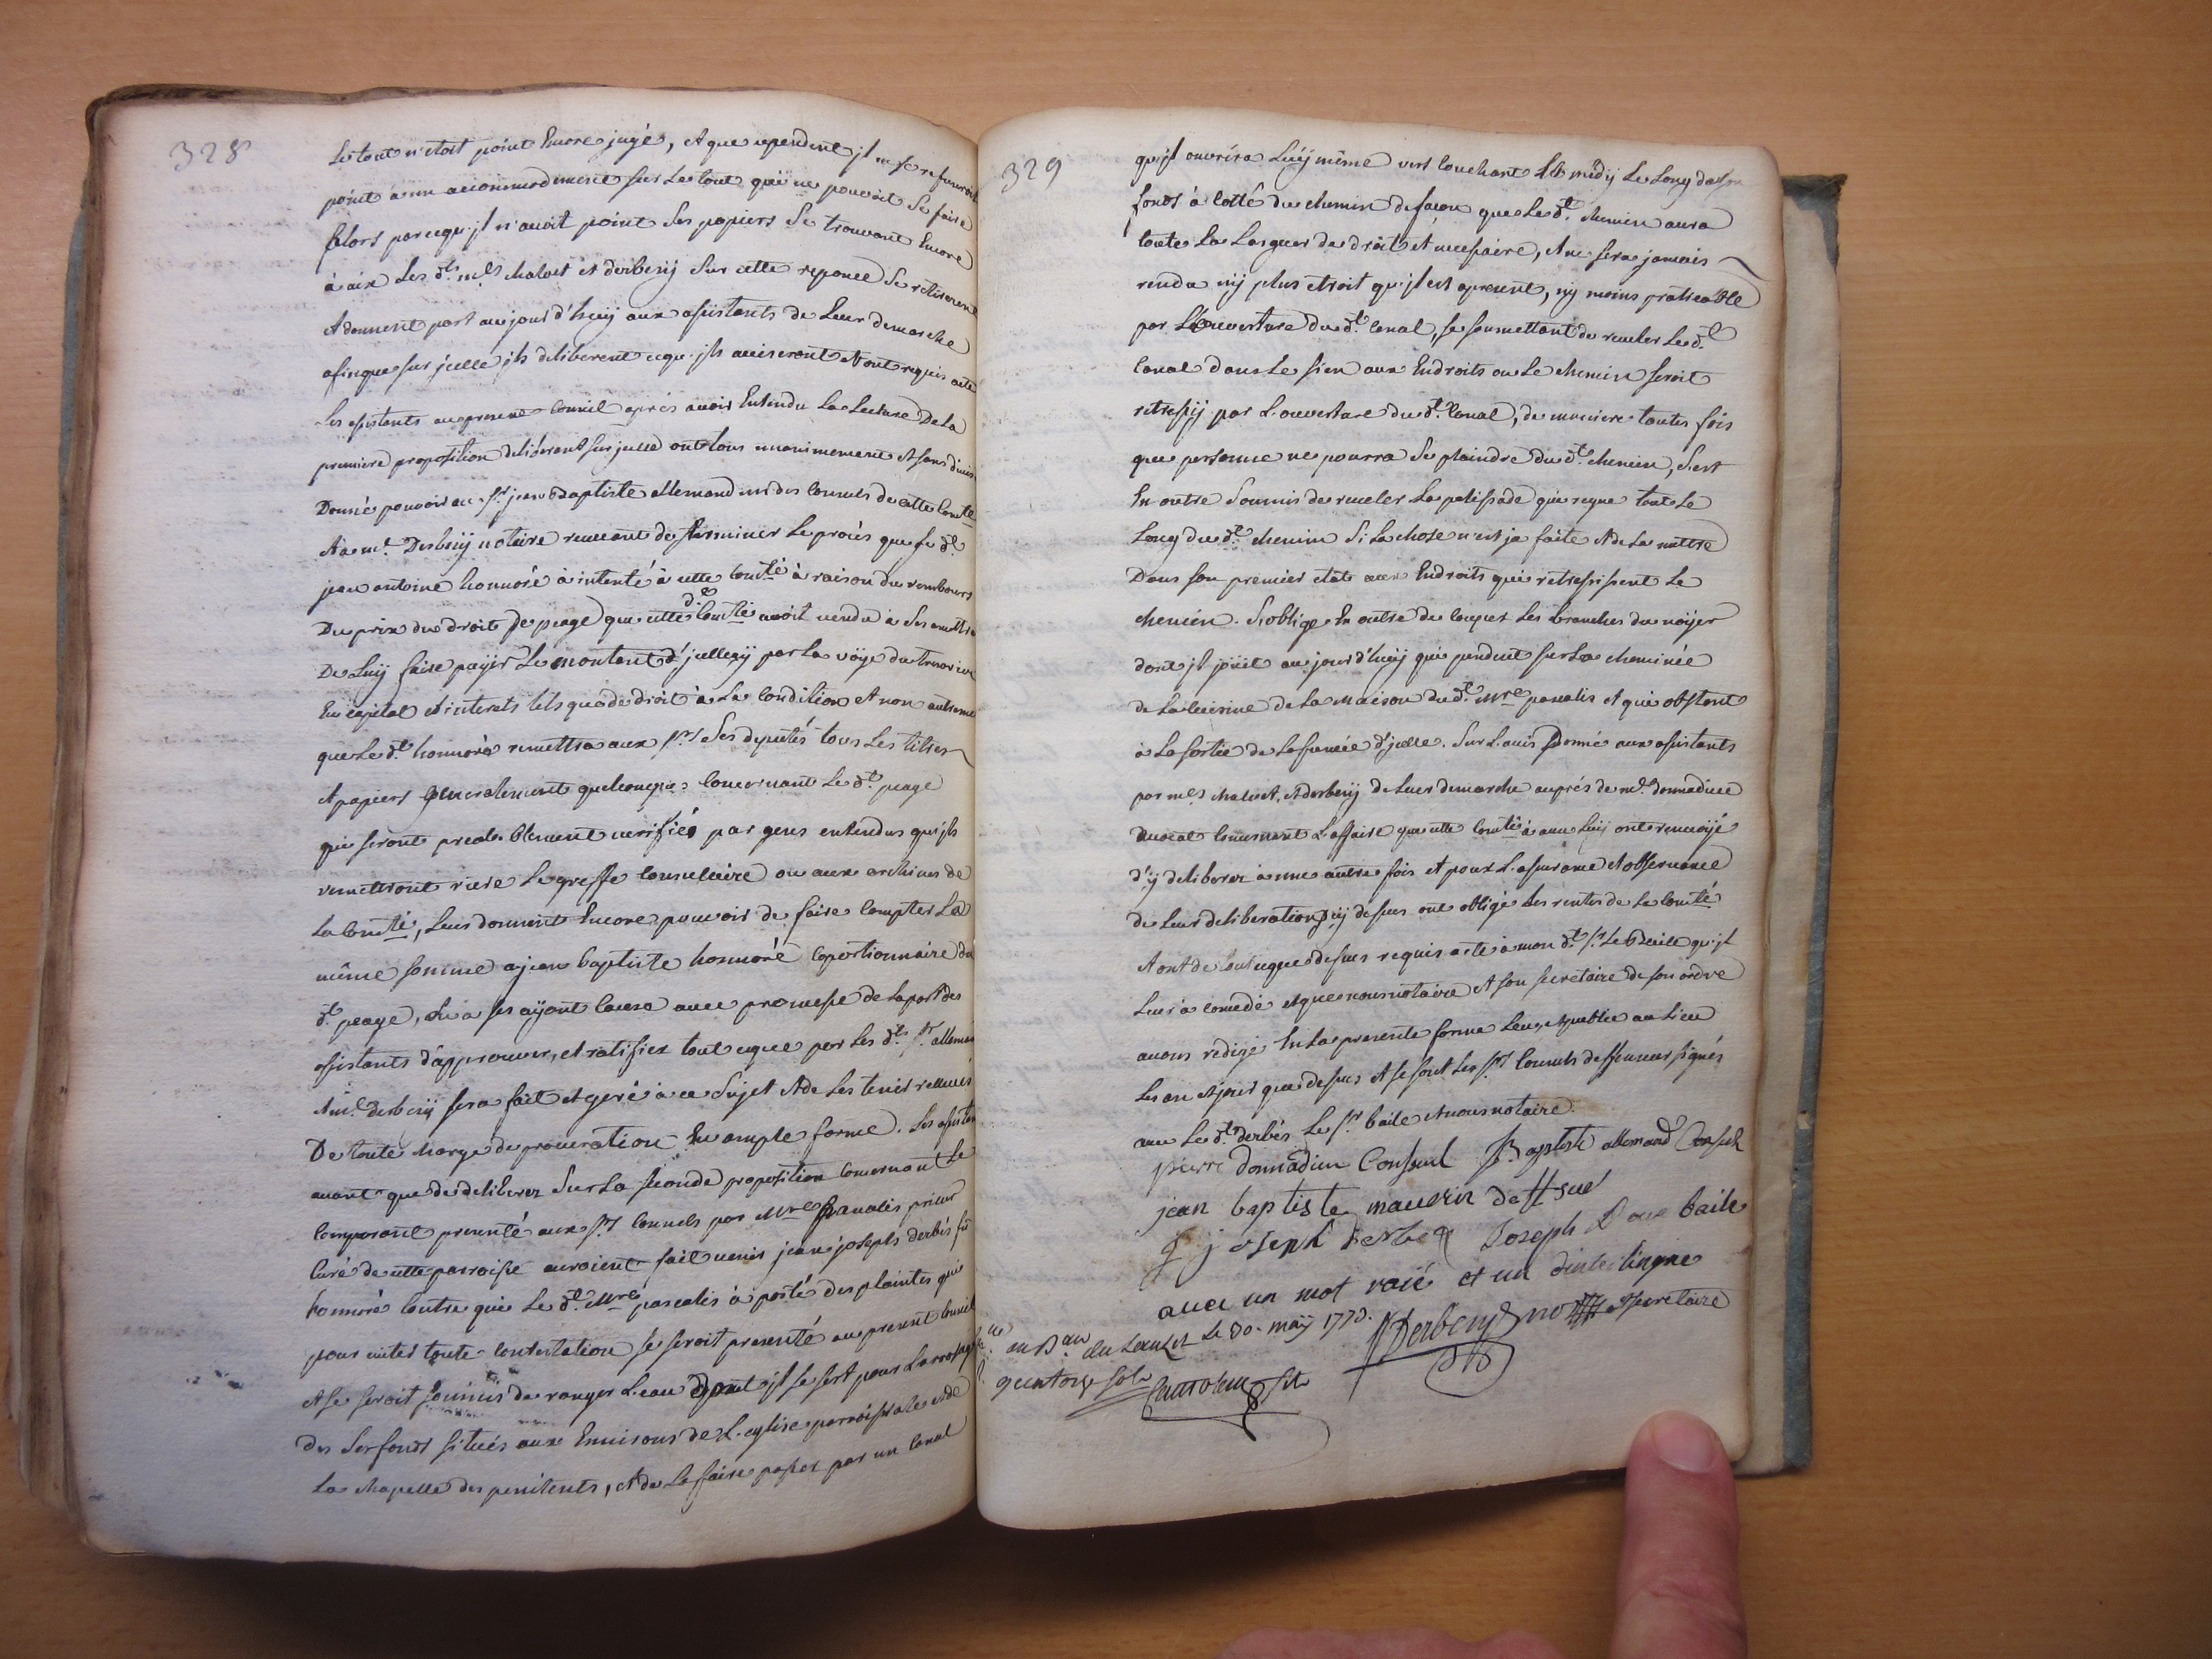 328
Le tout n'etoit point Encore jugé, et que cependent jl ne se refuseroit
point à un accommodement sur Le tout qui ne pouvoit Se faire
alors parcequ'jl n'avoit point Ses papiers Se trouvant Encore
à aix Les dts. mes. Maluet et derbesÿ Sur cette reponce Se retirerent
et donnent part aujourd'huÿ aux assistants de Leur demarche
afinque sur jcelle jls deliberent cequ'jls aviseront et ont requis acte
Les assistants au present Conseil aprés avoir Entendu La Lecture De La
premiere proposition deliberant sur jcelle ont tous unanimement et sans divis
Donné pouvoir au sr. jean Baptiste allemand un des Consuls de cette Comté
et à me. Derbesÿ notaire recevant de terminer Le procés que le dt.
jean antoine honnoré à intenté à cette Comté à raison du rembours
Du prix du droit de peage que cette dte Comté avoit vendu à Ses
De Luÿ faire payer Le montant d'jcelluÿ par La vöÿe du
En capital et interets tels que de droit à La Condition et non autreme
que Le dt. honnoré remettra aux srs. Ses deputés tous Les titres
et papiers generalement quelconques Concernant Le dt. peage
qui seront prealablement verifiés par gens entendus qu'jls
remettront riere Le greffe Consulaire ou aux archives de
La Comté, Leur donnent Encore pouvoir de faire Compter La
même somme a jean baptiste honnoré Coportionnaire du
dt. peage, ou a ses aÿant Cause avec promesse de La part des
assistants d'approuver, et ratifier tout ceque par Les dts. sr. alleman
et me. derbesÿ sera fait et geré à ce Sujet et de Les tenir relevés
De toute charge de procuration En ample forme. Les assistan
avant que de deliberer Sur La seconde proposition Concernant Le
Comparant presenté aux srs. Consuls par Mre. pascalis prieur
Curé de cette parroisse auroient fait venir jean joseph derbés fû
honnoré Contre qui Le dt. Mre. pascalis à porté des plaintes qui
pour eviter toute Contestation se seroit presenté au present Conseil
et se seroit soumis de ranger L'eau dont jl se sert pour L'arrosage
des Ses fonds situés aux Environs de L'eglise parroissiale et de
La chapelle des penitents, et de La faire passer par un Canal
329
qu'jl ouvrira Luÿ même vers Couchant et midÿ Le Long de son
fonds à Cotté du chemin de facon que Le dt. chemin aura
toute La Largeur de droit et necessaire, et ne sera jamais
rendu nÿ plus etroit qu'jl est apresent, nÿ moins pratiquable
par L'ouverture du dt. Canal, se soumettant de reculer Le dt.
Canal dans Le sien aux Endroits ou Le chemin seroit
retressÿ par L'ouverture du dt. Canal, de maniere toutes fois
que personne ne pourra Se plaindre du dt. chemin, S'est
En outre Soumis de reculer La palissade qui regne tout Le
Long du dt. chemin Si La chose n'est ja faite et de La mettre
Dans son premier etat aux Endroits qui retressissent Le
chemin. S'oblige En outre de Couper Les branches du noÿer
dont jl joüit aujourd'huÿ qui pendent sur La cheminée
de La Cuisine de La maison du dt. Mre. pascalis et qui obstent
à La sortie de La fumée d'jcelle. Sur L'avis donné aux assistants
par mes. Maluet, et derbesÿ de Leur demarche auprés de me. donnadieu
avocat Concernant L'affaire que cette Comté à avec Luÿ ont renvoÿé
d'ÿ deliberer à une autre fois et pour L'assurance et observance
de Leur deliberation cÿ dessus ont obligé Les rentes de La Comté
et ont de tout ceque dessus requis acte à mon dt. sr. Le Baile qu'jl
Leur à Concedé et que nous notaire et son secretaire de son ordre
avons redigé En La presente forme Leue, et publiée au Lieu
Les an et jour que dessus et se sont Les srs. Consuls deffenseur signés
avec Le dt. derbés Le sr. baile et nous notaire.
pierre donnadieu Consul J Baptiste allemand Consul
jean baptiste maurin deffseur
j joseph derbes Joseph Baile
avec un mot raié et un dinterligne
Derbesÿ not. et secretaire
au Bau du Lauzet Le 30. maÿ 1773.
quatorze sols